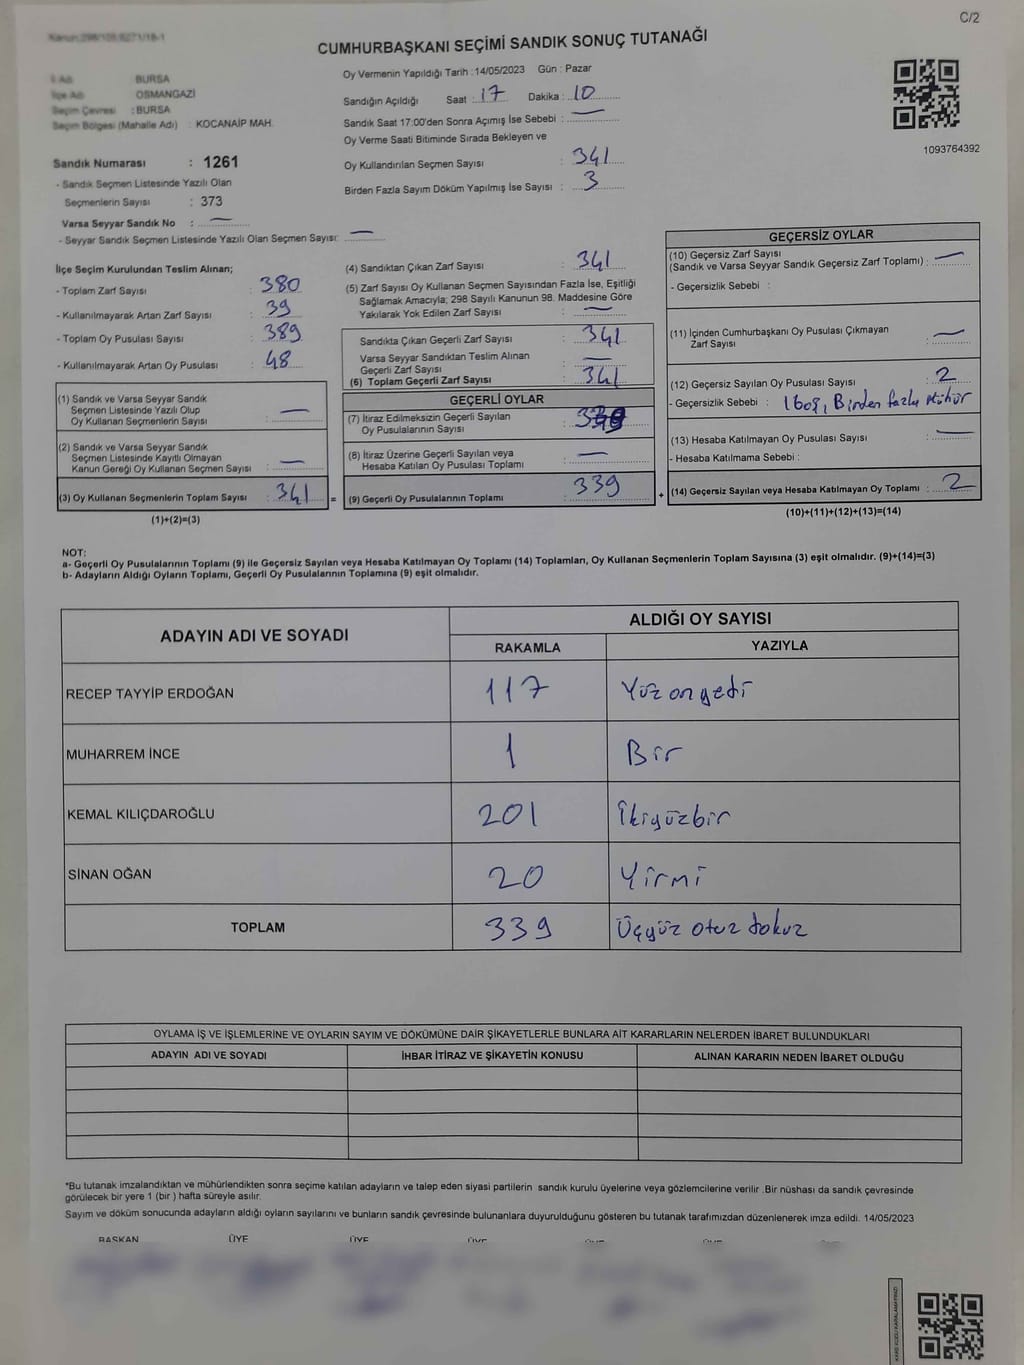 C/2
Kanun:298/105,6271/18-1
CUMHURBAŞKANI SEÇİMİ SANDIK SONUÇ TUTANAĞI
İl Adı : BURSA
İlçe Adı : OSMANGAZİ
Seçim Çevresi : BURSA
Seçim Bölgesi (Mahalle Adı) : KOCANAİP MAH.
Sandık Numarası : 1261
- Sandık Seçmen Listesinde Yazılı Olan
Seçmenlerin Sayısı : 373
Varsa Seyyar Sandık No : —
- Seyyar Sandık Seçmen Listesinde Yazılı Olan Seçmen Sayısı: —
Oy Vermenin Yapıldığı Tarih :14/05/2023 Gün : Pazar
Sandığın Açıldığı Saat : 17 Dakika : 10
Sandık Saat 17:00'den Sonra Açımış İse Sebebi : —
Oy Verme Saati Bitiminde Sırada Bekleyen ve
Oy Kullandırılan Seçmen Sayısı : 341
Birden Fazla Sayım Döküm Yapılmış İse Sayısı : 3
1093764392
İlçe Seçim Kurulundan Teslim Alınan;
- Toplam Zarf Sayısı : 380
- Kullanılmayarak Artan Zarf Sayısı : 39
- Toplam Oy Pusulası Sayısı : 389
- Kullanılmayarak Artan Oy Pusulası : 48
(1) Sandık ve Varsa Seyyar Sandık
Seçmen Listesinde Yazılı Olup
Oy Kullanan Seçmenlerin Sayısı : —
(2) Sandık ve Varsa Seyyar Sandık
Seçmen Listesinde Kayıtlı Olmayan
Kanun Gereği Oy Kullanan Seçmen Sayısı : —
(3) Oy Kullanan Seçmenlerin Toplam Sayısı : 341 =
(1)+(2)=(3)
(4) Sandıktan Çıkan Zarf Sayısı : 341
(5) Zarf Sayısı Oy Kullanan Seçmen Sayısından Fazla İse, Eşitliği
Sağlamak Amacıyla; 298 Sayılı Kanunun 98. Maddesine Göre
Yakılarak Yok Edilen Zarf Sayısı : —
Sandıkta Çıkan Geçerli Zarf Sayısı : 341
Varsa Seyyar Sandıktan Teslim Alınan
Geçerli Zarf Sayısı : —
(6) Toplam Geçerli Zarf Sayısı : 341
GEÇERLİ OYLAR
(7) İtiraz Edilmeksizin Geçerli Sayılan
Oy Pusulalarının Sayısı :
(8) İtiraz Üzerine Geçerli Sayılan veya
Hesaba Katılan Oy Pusulası Toplamı : —
(9) Geçerli Oy Pusulalarının Toplamı : 339 +
GEÇERSİZ OYLAR
(10) Geçersiz Zarf Sayısı
(Sandık ve Varsa Seyyar Sandık Geçersiz Zarf Toplamı) : —
- Geçersizlik Sebebi :
(11) İçinden Cumhurbaşkanı Oy Pusulası Çıkmayan
Zarf Sayısı : —
(12) Geçersiz Sayılan Oy Pusulası Sayısı : 2
- Geçersizlik Sebebi : 1 boş, Birden fazla mühür
(13) Hesaba Katılmayan Oy Pusulası Sayısı : —
- Hesaba Katılmama Sebebi :
(14) Geçersiz Sayılan veya Hesaba Katılmayan Oy Toplamı : 2
(10)+(11)+(12)+(13)=(14)
NOT:
a- Geçerli Oy Pusulalarının Toplamı (9) ile Geçersiz Sayılan veya Hesaba Katılmayan Oy Toplamı (14) Toplamları, Oy Kullanan Seçmenlerin Toplam Sayısına (3) eşit olmalıdır. (9)+(14)=(3)
b- Adayların Aldığı Oyların Toplamı, Geçerli Oy Pusulalarının Toplamına (9) eşit olmalıdır.
ADAYIN ADI VE SOYADI ALDIĞI OY SAYISI
RAKAMLA YAZIYLA
RECEP TAYYİP ERDOĞAN 117 Yüz onyedi
MUHARREM İNCE 1 Bir
KEMAL KILIÇDAROĞLU 201 İkiyüzbir
SİNAN OĞAN 20 Yirmi
TOPLAM 339 Üçyüz otuz dokuz
OYLAMA İŞ VE İŞLEMLERİNE VE OYLARIN SAYIM VE DÖKÜMÜNE DAİR ŞİKAYETLERLE BUNLARA AİT KARARLARIN NELERDEN İBARET BULUNDUKLARI
ADAYIN ADI VE SOYADI İHBAR İTİRAZ VE ŞİKAYETİN KONUSU ALINAN KARARIN NEDEN İBARET OLDUĞU
*Bu tutanak imzalandıktan ve mühürlendikten sonra seçime katılan adayların ve talep eden siyasi partilerin sandık kurulu üyelerine veya gözlemcilerine verilir .Bir nüshası da sandık çevresinde
görülecek bir yere 1 (bir ) hafta süreyle asılır.
Sayım ve döküm sonucunda adayların aldığı oyların sayılarını ve bunların sandık çevresinde bulunanlara duyurulduğunu gösteren bu tutanak tarafımızdan düzenlenerek imza edildi. 14/05/2023
BAŞKAN ÜYE ÜYE ÜYE ÜYE ÜYE